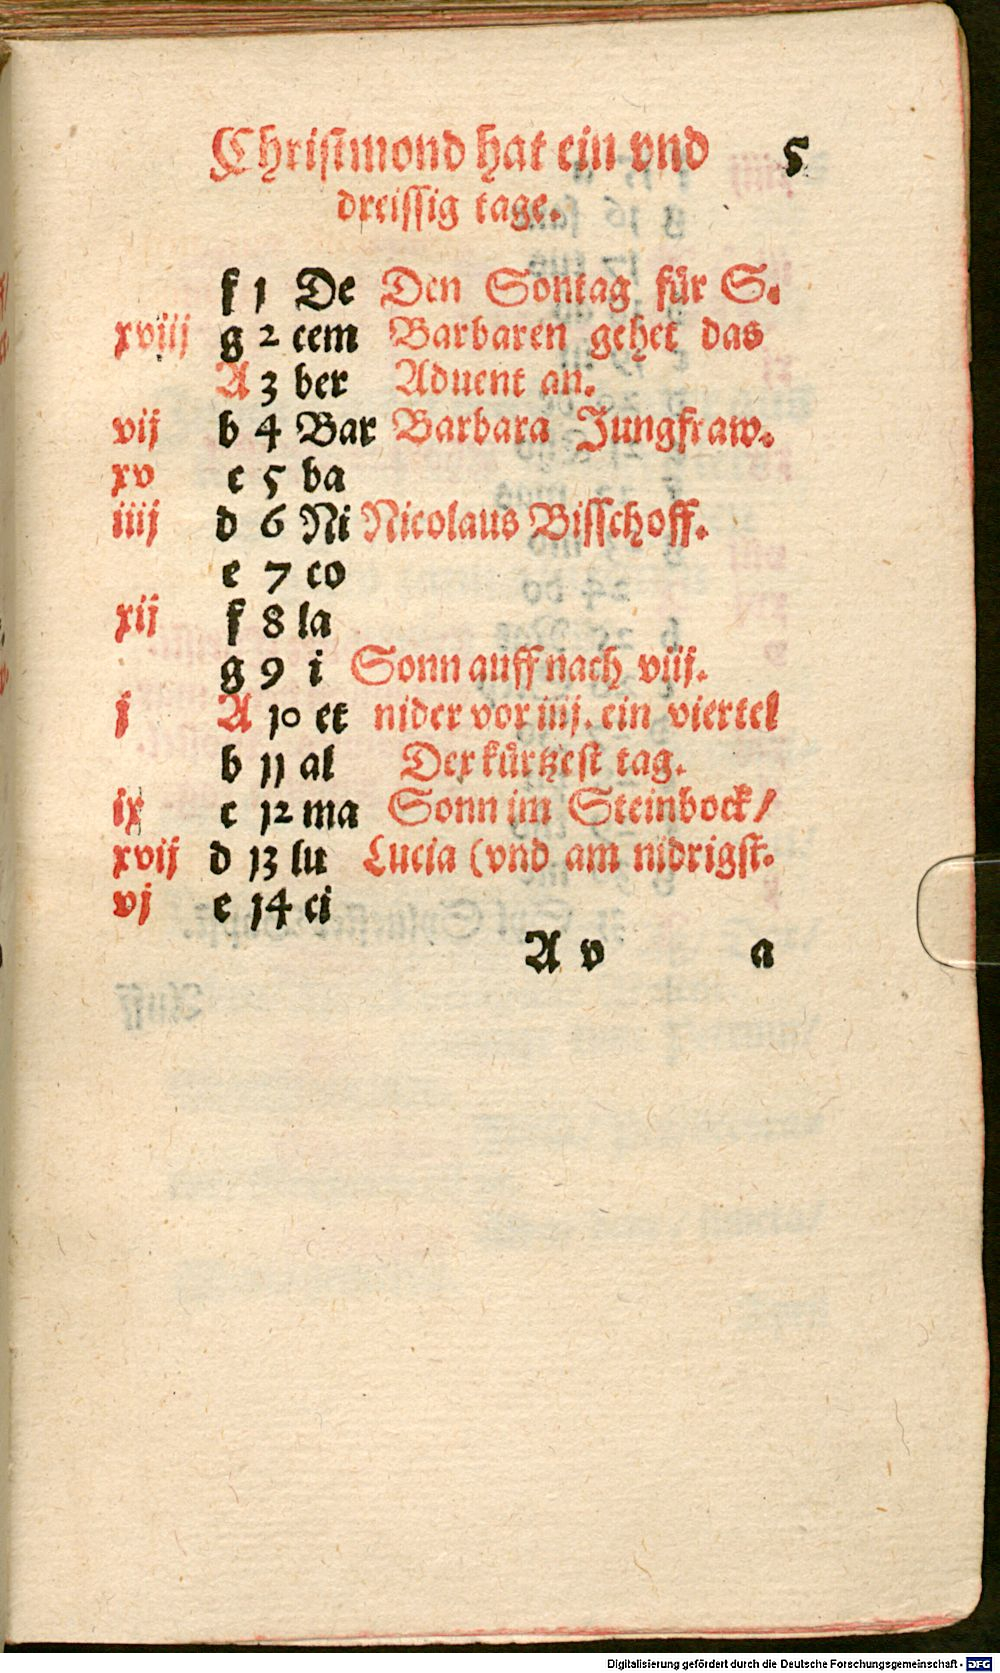 Christmond hat ein vnd 5
dreissig tage.
f 1 De Den Sontag für S.
xviij g 2 cem Barbaren gehet das
A 3 ber Aduent an.
vij b 4 Bar Barbara Jungfraw.
xv c 5 ba
iiij d 6 Ni Nicolaus Bisschoff.
e 7 co
xij f 8 la
g 9 i Sonn auff nach viij.
j A 10 et nider vor iiij. ein viertel
b 11 al Der kürtzest tag.
ix c 12 ma Sonn im Steinbock/
xvij d 13 lu Lucia (vnd am nidrigst.
vj e 14 ci
A v a
Digitalisierung gefördert durch die Deutsche Forschungsgemeinschaft - DFG